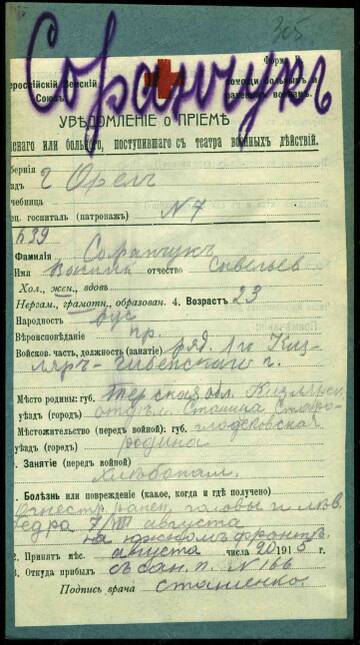 305
Форма
Соранчукъ
ероссійскій Земскій
Союзъ
помощи больнымъ и
раненымъ воинамъ.
УВѢДОМЛЕНІЕ о ПРІЕМѢ
наго или больного, поступившаго съ театра военныхъ дѣйствій.
бернія
ѣздъ г Орелъ
чебница
ец. госпиталь (патронажъ) N 7
639
Фамилія Соранчукъ
Имя Василій отчество Савельев
Хол., жен., вдовъ
Неграм., грамотн., образован. 4. Возрастъ 23
Народность рус
Вѣроисповѣданіе пр.
Войсков. часть, должность (занятіе) ряд. 1го Киз-
ляръ-
Мѣсто родины: губ. Терская обл. Кизлярск.
уѣздъ (городъ) отдѣл. Станица
Мѣстожительство (передъ войной): губ. гладковская
уѣздъ (городъ) родина
Занятіе (передъ войной)
хлѣбопаш.
Болѣзнь или поврежденіе (какое, когда и гдѣ получено)
Огнестр. ранен. головы и лѣв.
бедра 7/VIII августа
на южномъ фронтѣ.
2. Принятъ мѣс. августа числа 20 1915 г.
3. Откуда прибылъ съ сан. п. N 166
Подпись врача